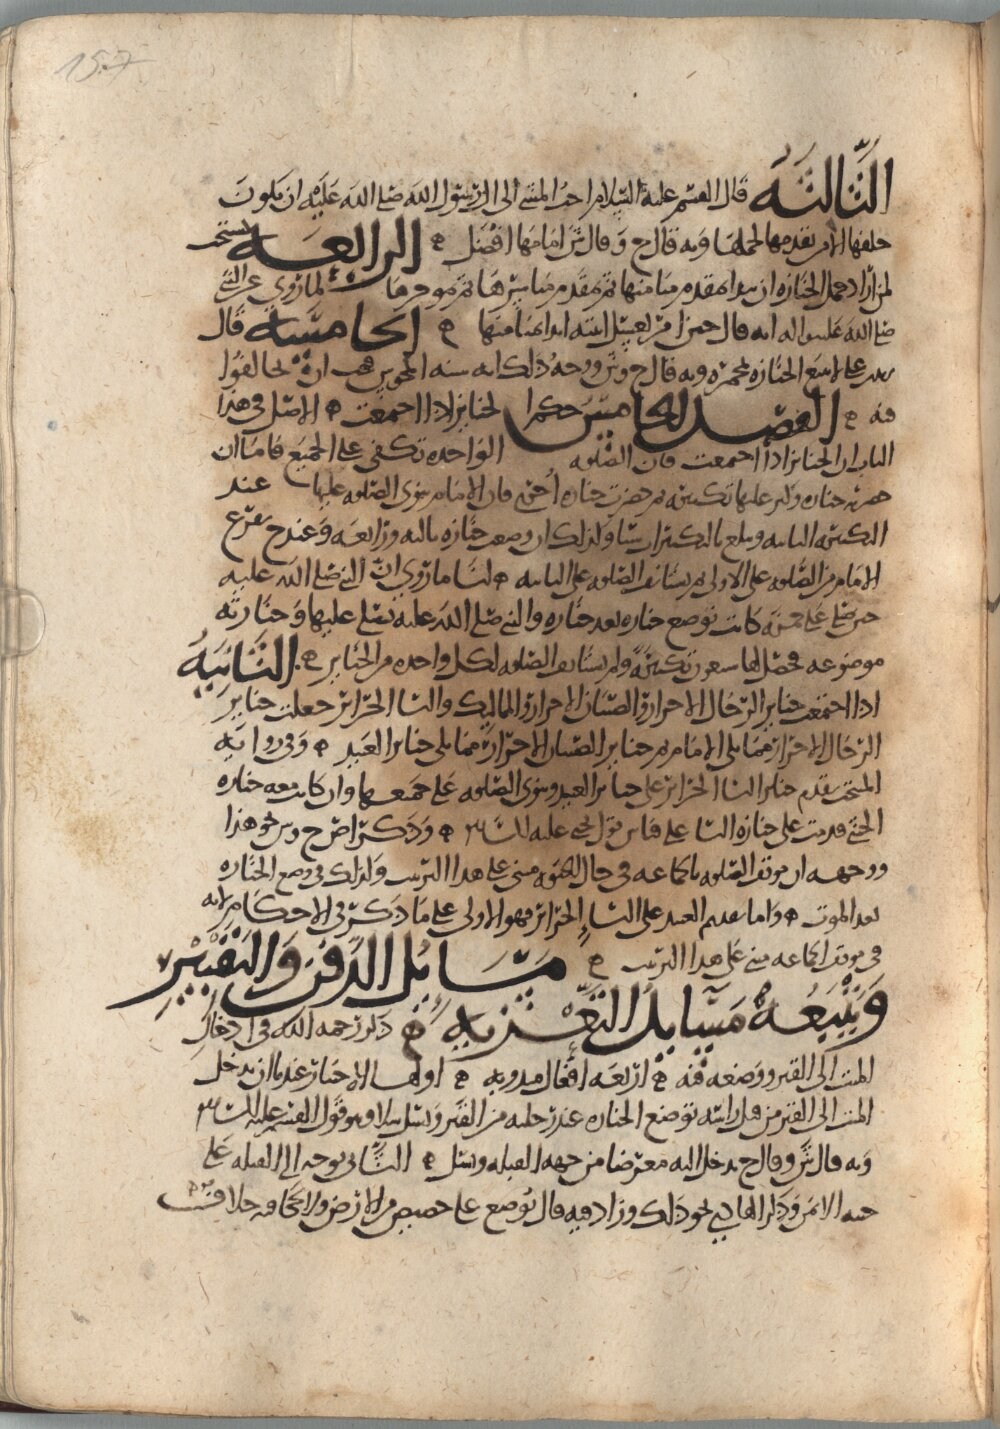 157
الثالثة قال القسم عليه السلام احب المشي الى ال رسول الله صلى الله عليه ان يكون
خلفها الا من يقدمها لحملها وبه قال ح وقال ش امامها افضل ه الرابعة يستحب
لمن اراد حمل الجنازة ان يبدا بمقدم ميامنها ثم بمقدم مياسرها ثم بموخرها لما روي عن النبي
صلى الله عليه واله انه قال حين امر بغسل ابنته ابدا بميامنها ه الخامسة قال
على لا تتبع الجنازة بمجمرة وبه قال ح وش ووجه ذلك انه سنة المجوس فيجب ان يخالفوا
فيه ه الفصل الخامس حكم الجنايز اذا اجتمعت ه الاصل في هذا
الباب ان الجنايز اذا اجتمعت فان الصلوة الواحدة تكفي على الجميع فاما ان
حضرت جنازة وكبر عليها تكبيرة ثم حضرت جنازة اخرى فان الامام ينوي الصلوة عليها عند
التكبيرة الثانية ويبلغ بالتكبيرات ستا وكذلك ان وضعت جنازة ثالثة ورابعة وعند ح يفرغ
الامام من الصلوة على الاولى ثم يستانف الصلوة على الثانية ه لنا ما روي ان النبي صلى الله عليه
حين صلى على حمزة كانت توضع جنازة بعد جنازة والنبي صلى الله عليه يصلي عليها وجنازته
موضوعة فحصل لها سبعون تكبيرة ولم يستانف الصلوة لكل واحدة من الجنايز ه الثانية
اذا اجتمعت جنايز الرجال الاحرار والصبيان الاحرار والمماليك والنسا الحراير جعلت جنايز
الرجال الاحرار مما يلي الامام ثم جنايز الصبيان الاحرار مما يلي جنايز العبيد ه وفي رواية
المنتخب تقدم جنايز النسا الحراير على جنايز العبيد وينوي الصلوة على جميعها وان كانت معه جنازة
الخنثى قدمت على جنازة النسا على قياس قول يحيى عليه السلام ه وذكر اص ح وش نحو هذا
ووجهه ان موقف الصلوة بالجماعة في حال الحيوة مبني على هذا الترتيب وكذلك في وضع الجنازة
بعد الموت ه واما تقديم العبيد على النساء الحراير فهو الاولى على ما ذكر في الاحكام لانه
في موقف الجماعة مبني على هذا الترتيب ه مسايل الدفن والتقبير
ويتبعه مسايل التعزية ه ذكر رحمه الله في ادخال
الميت الى القبر ووضعه فيه ه اربعة افعال مندوبة ه اولها الاختيار عندنا ان يدخل
الميت الى القبر من قبل راسه توضع الجنازة عند رجليه من القبر ويسل سلا وهو قول القسم عليه السلام
وبه قال ش وقال ح يدخل اليه معترضا من جهة القبلة ويسل ه الثاني يوجه الى القبلة على
جنبه الايمن وذكر الهادي نحو ذلك وزاد فيه قال يوضع على حضيض من الارض ولا يجافيه خلا فيه